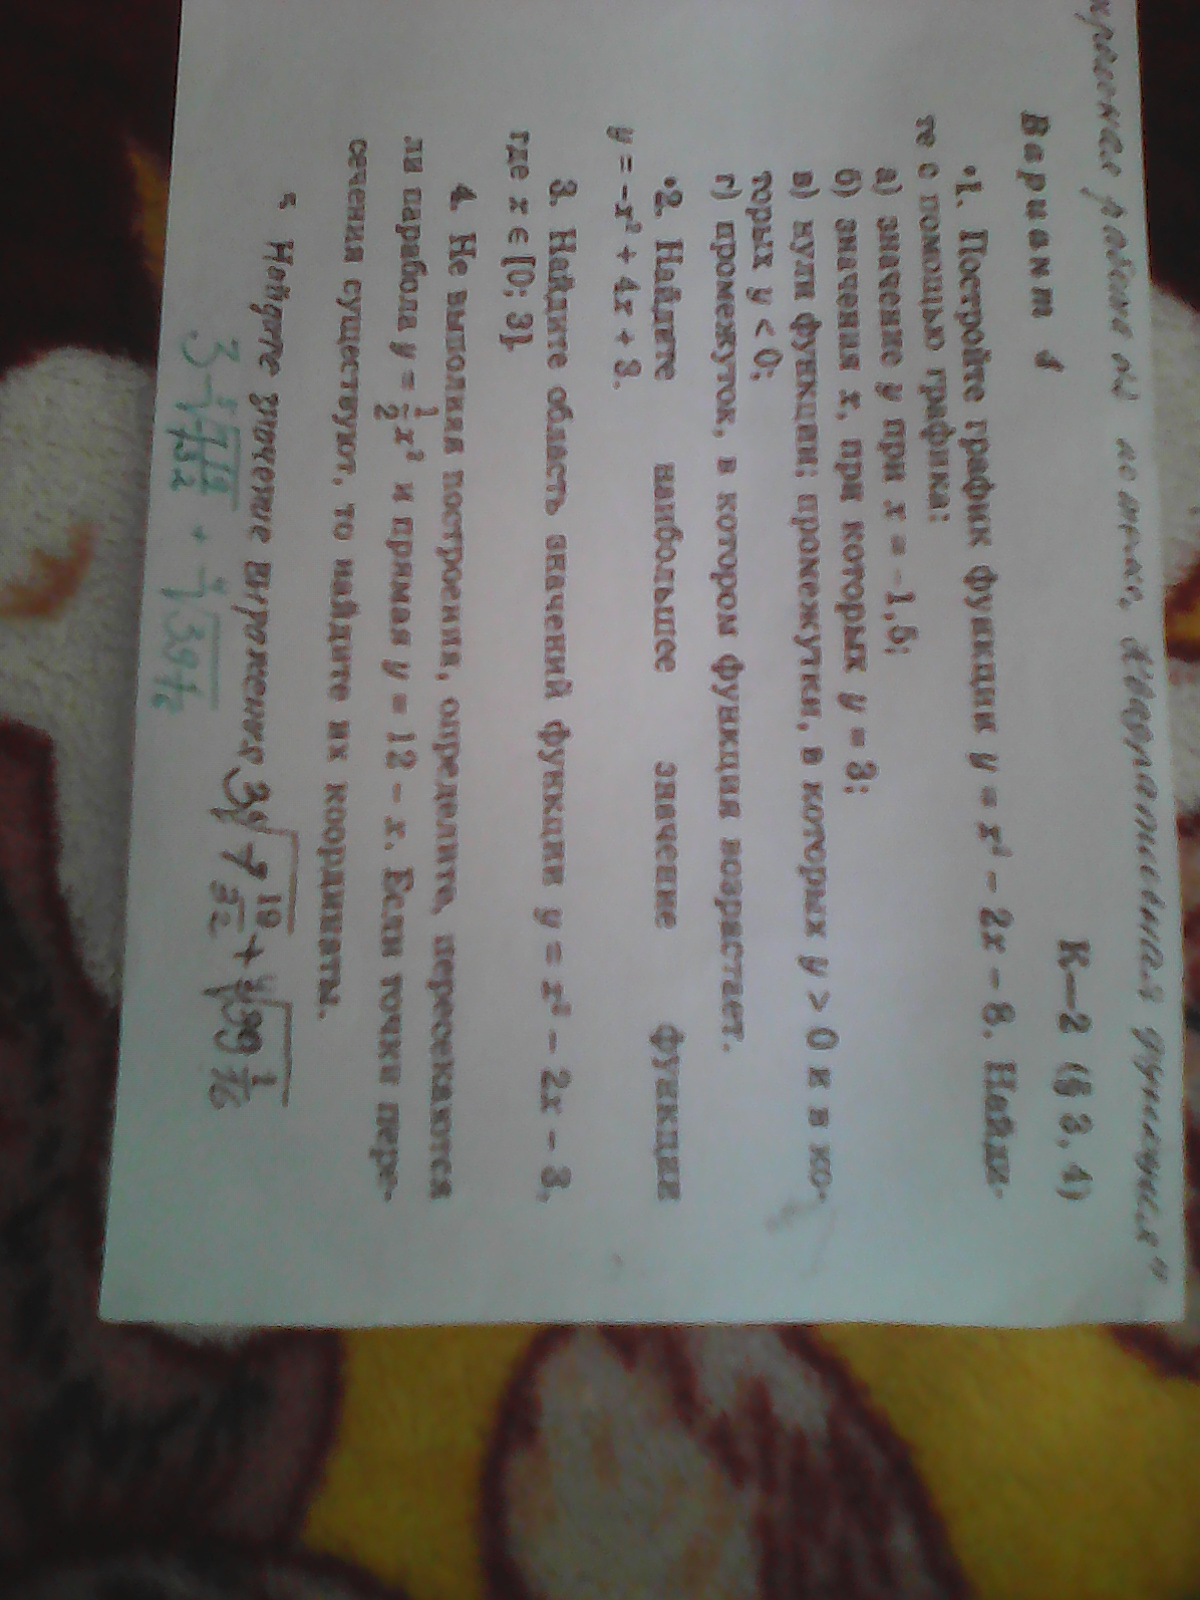 работа по теме „Квадратичная функция"
К—2 (§ 3, 4)
Вариант 1
•1. Постройте график функции y = x² − 2x − 8. Найди-
те с помощью графика:
а) значение y при x = −1,5;
б) значения x, при которых y = 3;
в) нули функции; промежутки, в которых y > 0 и в ко-
торых y < 0;
г) промежуток, в котором функция возрастает.
•2. Найдите наибольшее значение функции
y = −x² + 4x + 3.
3. Найдите область значений функции y = x² − 2x − 3,
где x ∈ [0; 3].
4. Не выполняя построения, определите, пересекаются
ли парабола y = 1/2 x² и прямая y = 12 − x. Если точки пере-
сечения существуют, то найдите их координаты.
5. Найдите значение выражения 3 ⁵√7 19/32 + ⁴√39 1/16
3 − ⁵√7 19/32 + ⁴√39 1/16